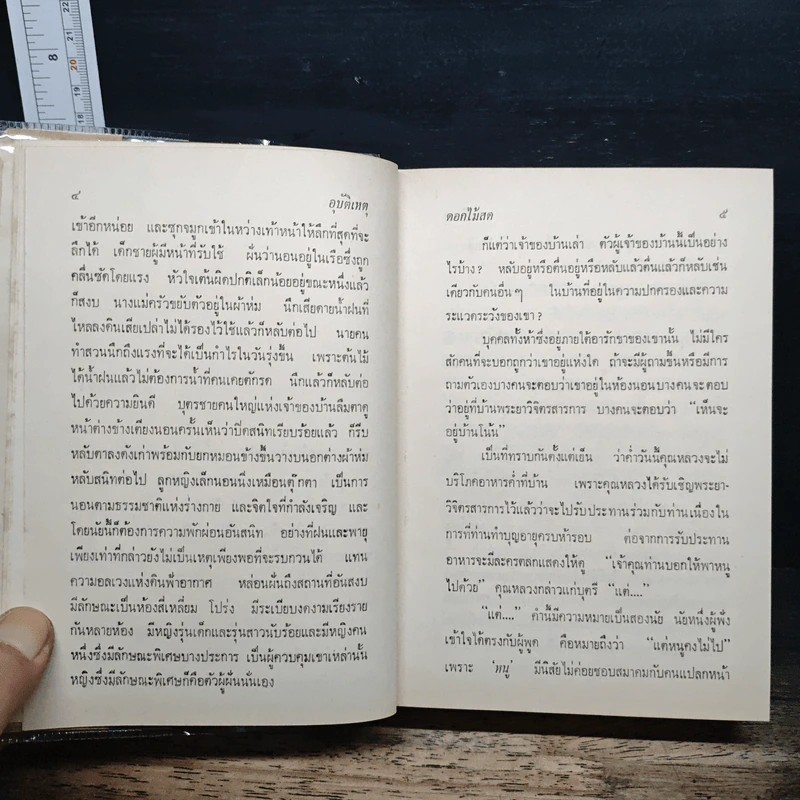 8
22
21
20
19
18
๔
อุบัติเหตุ
เข้าอีกหน่อย และซุกจมูกเข้าในหว่างเท้าหน้าให้ลึกที่สุดที่จะ
ลึกได้ เด็กชายผู้มีหน้าที่รับใช้ ฝันว่านอนอยู่ในเรือซึ่งถูก
คลื่นซัดโดยแรง หัวใจเต้นผิดปกติเล็กน้อยอยู่ขณะหนึ่งแล้ว
ก็สงบ นางแม่ครัวขยับตัวอยู่ในผ้าห่ม นึกเสียดายน้ำฝนที่
ไหลลงดินเสียเปล่าไม่ได้รองไว้ใช้แล้วก็หลับต่อไป นายคน
ทำสวนนึกถึงแรงที่จะได้เป็นกำไรในวันรุ่งขึ้น เพราะต้นไม้
ได้น้ำฝนแล้วไม่ต้องการน้ำที่คนเคยตักรด นึกแล้วก็หลับต่อ
ไปด้วยความยินดี บุตรชายคนใหญ่แห่งเจ้าของบ้านลืมตาดู
หน้าต่างข้างเตียงนอนครั้นเห็นว่าปิดสนิทเรียบร้อยแล้ว ก็รีบ
หลับตาลงดังเก่าพร้อมกับยกหมอนข้างขึ้นวางบนอกต่างผ้าห่ม
หลับสนิทต่อไป ลูกหญิงเล็กนอนนิ่งเหมือนตุ๊กตา เป็นการ
นอนตามธรรมชาติแห่งร่างกาย และจิตใจที่กำลังเจริญ และ
โดยนัยนี้ก็ต้องการความพักผ่อนอันสนิท อย่างที่ฝนและพายุ
เพียงเท่าที่กล่าวยังไม่เป็นเหตุเพียงพอที่จะรบกวนได้ แทน
ความอลเวงแห่งดินฟ้าอากาศ หล่อนฝันถึงสถานที่อันสงบ
มีลักษณะเป็นห้องสี่เหลี่ยม โปร่ง มีระเบียบงดงามเรียงราย
กันหลายห้อง มีหญิงรุ่นเด็กและรุ่นสาวนับร้อยและมีหญิงคน
หนึ่งซึ่งมีลักษณะพิเศษบางประการ เป็นผู้ควบคุมเขาเหล่านั้น
หญิงซึ่งมีลักษณะพิเศษก็คือตัวผู้ฝันนั่นเอง
ดอกไม้สด
๕
ก็แต่ว่าเจ้าของบ้านเล่า ตัวผู้เจ้าของบ้านนี้เป็นอย่าง
ไรบ้าง? หลับอยู่หรือตื่นอยู่หรือหลับแล้วตื่นแล้วก็หลับเช่น
เดียวกับคนอื่นๆ ในบ้านที่อยู่ในความปกครองและความ
ระแวดระวังของเขา?
บุคคลทั้งห้าซึ่งอยู่ภายใต้อารักขาของเขานั้น ไม่มีใคร
สักคนที่จะบอกถูกว่าเขาอยู่แห่งใด ถ้าจะมีผู้ถามขึ้นหรือมีการ
ถามตัวเองบางคนจะตอบว่าเขาอยู่ในห้องนอน บางคนจะตอบ
ว่าอยู่ที่บ้านพระยาวิจิตรสารการ บางคนจะตอบว่า “เห็นจะ
อยู่บ้านโน้น”
เป็นที่ทราบกันตั้งแต่เย็น ว่าค่ำวันนี้คุณหลวงจะไม่
บริโภคอาหารค่ำที่บ้าน เพราะคุณหลวงได้รับเชิญพระยา-
วิจิตรสารการไว้แล้วว่าจะไปรับประทานร่วมกับท่านเนื่องใน
การที่ท่านทำบุญอายุครบห้ารอบ ต่อจากการรับประทาน
อาหารจะมีละครตลกแสดงให้ดู “เจ้าคุณท่านบอกให้พาหนู
ไปด้วย” คุณหลวงกล่าวแก่บุตรี “แต่....”
“แต่....” คำนี้มีความหมายเป็นสองนัย นัยหนึ่งผู้ฟัง
เข้าใจได้ตรงกับผู้พูด คือหมายถึงว่า “แต่หนูคงไม่ไป”
เพราะ ‘หนู’ มีนิสัยไม่ค่อยชอบสมาคมกับคนแปลกหน้า